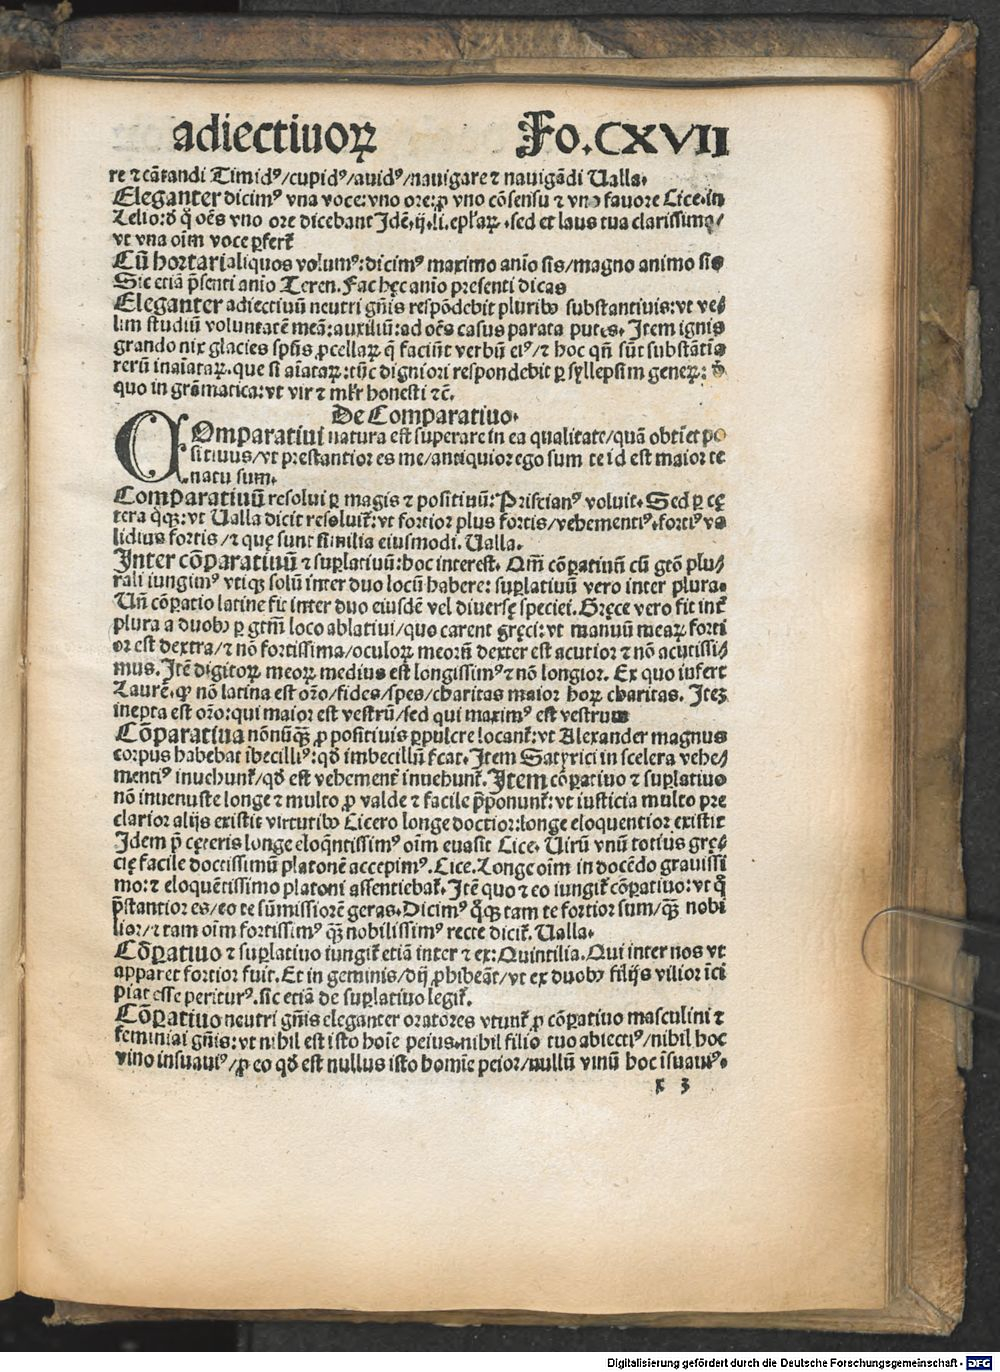 adiectiuoꝝ Fo.CXVII
re ⁊ cātandi Timidꝰ/cupidꝰ/auidꝰ/nauigare ⁊ nauigādi Ualla.
Eleganter dicimꝰ vna voce: vno ore: ꝓ vno cōsensu ⁊ vno fauore Cice. in
Lelio: d̓ q̄ oēs vno ore dicebant Jdē. ij. li. epl̓aꝝ. sed et laus tua clarissima/
vt vna oīm voce ꝓfert̄
Cū hortari aliquos volumꝰ: dicimꝰ maximo anīo sis/magno animo sis
Sic etiā p̄senti anīo Teren. Fac hęc anīo presenti dicas
Eleganter adiectiuū neutri gn̄is respōdebit pluribꝰ substantiuis: vt ve/
lim studiū voluntatē meā: auxiliū: ad oēs casus parata putes. Jtem ignis
grando nix glacies spūs ꝓcellaꝝ q̄ faciūt verbū eiꝰ/⁊ hoc qn̄ sūt substātia
rerū inaīataꝝ. que si aīataꝝ: tūc digniori respondebit ꝑ syllepsim geneꝝ: d̓
quo in grāmatica: vt vir ⁊ mlr̄ honesti ⁊c̄.
De Comparatiuo.
COmparatiui natura est superare in ea qualitate/quā obtīet po
sitiuus/vt prestantior es me/antiquior ego sum te id est maior te
natu sum.
Comparatiuū resolui ꝑ magis ⁊ positiuū: Priscianꝰ voluit. Sed ꝑ cę
tera q̄qꝫ: vt Ualla dicit resoluit̄: vt fortior plus fortis/vehementiꝰ. fortiꝰ va
lidius fortis/⁊ quę sunt similia eiusmodi. Ualla.
Jnter cōparatiuū ⁊ suꝑlatiuū: hoc interest. Qm̄ cōꝑatiuū cū gtō plu/
rali iungimꝰ vtiqꝫ solū inter duo locū habere: suꝑlatiuū vero inter plura.
Un̄ cōꝑatio latine fit inter duo eiusdē vel diuersę speciei. Gręce vero fit int̄
plura a duobꝰ ꝑ gtm̄ loco ablatiui/quo carent gręci: vt manuū meaꝝ forti
or est dextra/⁊ nō fortissima/oculoꝝ meorū dexter est acutior ⁊ nō acutissi/
mus. Jtē digitoꝝ meoꝝ medius est longissimꝰ ⁊ nō longior. Ex quo infert
Laurē. ꝙ nō latina est orō/fides/spes/charitas maior hoꝝ charitas. Jteꝫ
inepta est orō: qui maior est vestrū/sed qui maximꝰ est vestrum
Cōparatiua nōnūqꝫ̄ ꝓ positiuis ꝑpulcre locant̄: vt Alexander magnus
corpus habebat ībecilliꝰ: qd̓ imbecillū s̄cat. Jtem Satyrici in scelera vehe/
mentiꝰ inuehunt̄/qd̓ est vehement̄ inuehunt̄. Jtem cōꝑatiuo ⁊ suꝑlatiuo
nō inuenuste longe ⁊ multo ꝓ valde ⁊ facile p̄ponunt̄: vt iusticia multo pre
clarior alijs existit virtutibꝰ Cicero longe doctior: longe eloquentior existit
Jdem p̄ cęteris longe eloq̄ntissimꝰ oīm euasit Cice. Uirū vnū totius gręcię
cię facile doctissimū platonē accepimꝰ. Cice. Longe oīm in docēdo grauissi
mo: ⁊ eloquētissimo platoni assentiebat̄. Jtē quo ⁊ eo iungit̄ cōꝑatiuo: vt q̄
p̄stantior es/eo te sūmissiorē geras. Dicimꝰ q̄qꝫ tam te fortior sum/qꝫ̄ nobi
lior/⁊ tam oīm fortissimꝰ qꝫ̄ nobilissimꝰ recte dicit̄. Ualla.
Cōꝑatiuo ⁊ suꝑlatiuo iungit̄ etiā inter ⁊ ex: Quintilia. Qui inter nos vt
apparet fortior fuit. Et in geminis/dij ꝓhibeāt/vt ex duobꝰ filijs vilior īci
piat esse periturꝰ. sic etiā de suꝑlatiuo legit̄.
Cōꝑatiuo neutri gn̄is eleganter oratores vtunt̄ ꝓ cōꝑatiuo masculini ⁊
feminiai gn̄is: vt nihil est isto hoīe peius. nihil filio tuo abiectiꝰ/nihil hoc
vino insuauiꝰ/ꝓ eo qd̓ est nullus isto homīe peior/nullū vinū hoc īsuauiꝰ.
x 3
Digitalisierung gefördert durch die Deutsche Forschungsgemeinschaft - DFG